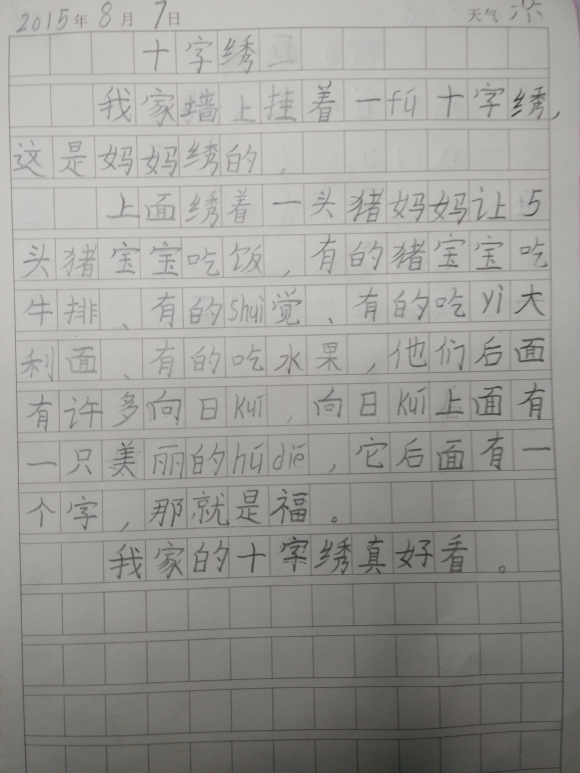 2015年8月7日 天气
十字绣
我家墙上挂着一fú十字绣，
这是妈妈绣的。
上面绣着一头猪妈妈让5
头猪宝宝吃饭，有的猪宝宝吃
牛排、有的shuì觉、有的吃yì大
利面、有的吃水果，他们后面
有许多向日kuí，向日kuí上面有
一只美丽的hú dié，它后面有一
个字，那就是福。
我家的十字绣真好看。